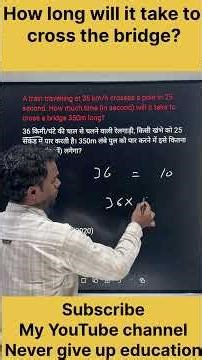 How long will it take to
cross the bridge?
A train travelling at 36 km/h crosses a pole in 25
second. How much time (in second) will it take to
cross a bridge 350m long?
36 किमी/घंटे की चाल से चलने वाली रेलगाड़ी, किसी खंभे को 25
सेकंड में पार करती है। 350m लंबे पुल को पार करने में इसे कितना
लगेगा?
36 = 10
36×
2020)
Subscribe
My YouTube channel
Never give up education